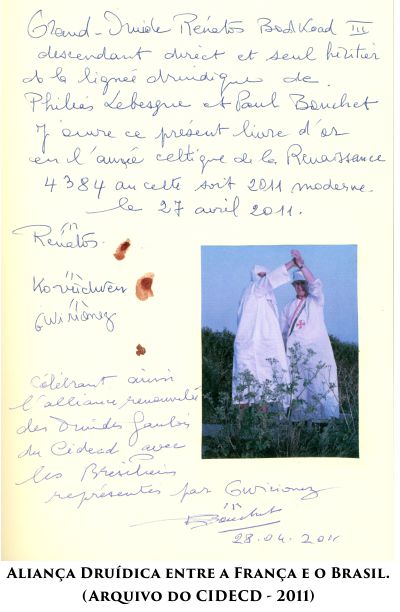 Grand-Druide Rénatos Bodkoad III
descendant direct et seul héritier
de la lignée druidique de
Philéas Lebesgue et Paul Bouchet
J'ouvre ce présent livre d'or
en l'année celtique de la Renaissance
4384 au celte soit 2011 moderne.
le 27 avril 2011.
Rénatos.
Gwirionez
célébrant ainsi
l'alliance renouvelée
des Druides Gaulois
du Cidecd avec
les Brésiliens
représentés par Gwirionez
Bouchet
28.04.2011
Aliança Druídica entre a França e o Brasil.
(Arquivo do CIDECD - 2011)